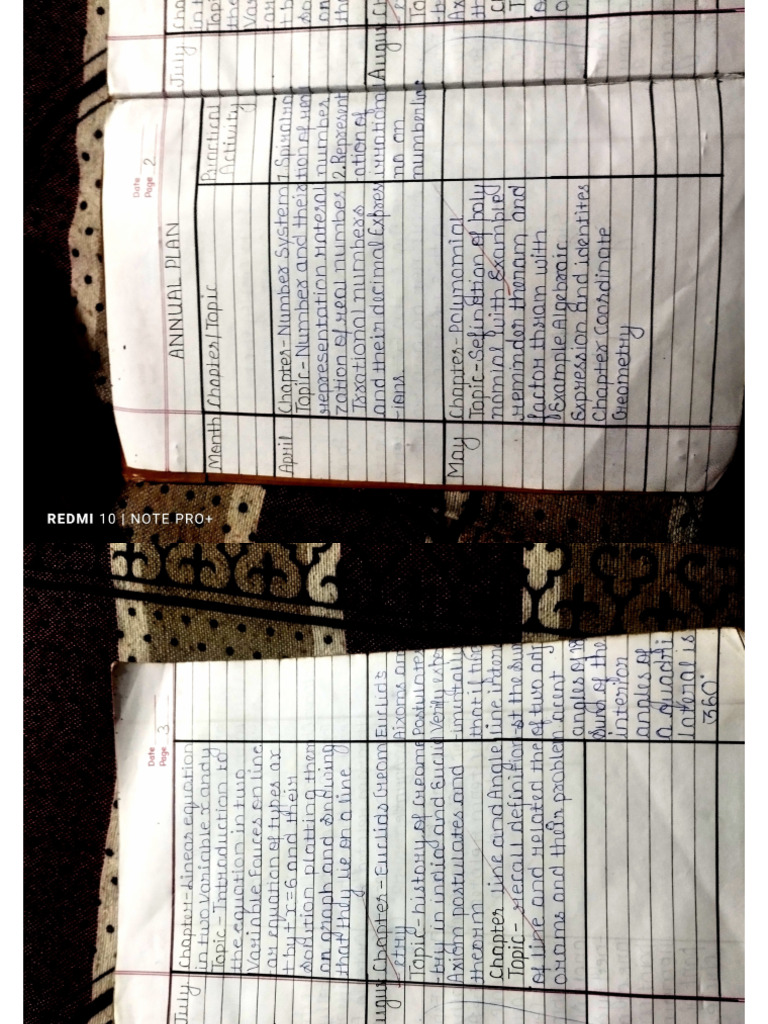 Date
Page 2
ANNUAL PLAN
Month
Chapter/Topic
Practical
Activity
April
Chapter-Number System
Topic-Number and their
representation rateral
zation of real numbers
Irrational numbers
and their decimal Expres
-ions.
1. Spiral
ation of real
numbers
2. Represent
ation of
irrational
no on
numberline
May
Chapter-Polynomial
Topic-Sefinition of poly
nomial with Example
reminder theram and
factor thram with
Example Algebraic
Expression and identites
Chapter Coordinate
Geometry
July
August
REDMI 10 | NOTE PRO+
Date
Page 3
July
Chapter-Linear equation
in two Variable x and y
Topic-Introduction to
the equation in two
Variable Fouces on line
ar equation of types ax
+by+x=6 and their
Solution plotting them
on graph and Sndwing
that they lie on a line
Chapter-Euclids Geom
etry
Topic-history of Geome
try in india and Euclid
Axiom postulates and
theorm
Chapter line and Angle
Topic- recall definition
of line and related the
orams and their problem
Euclids
Aixoms an
Postulates
Verify
that if
line
st the sum
of two
acent
angles of
Sum of the
interior
angles of
a quadri
lateral is
360°